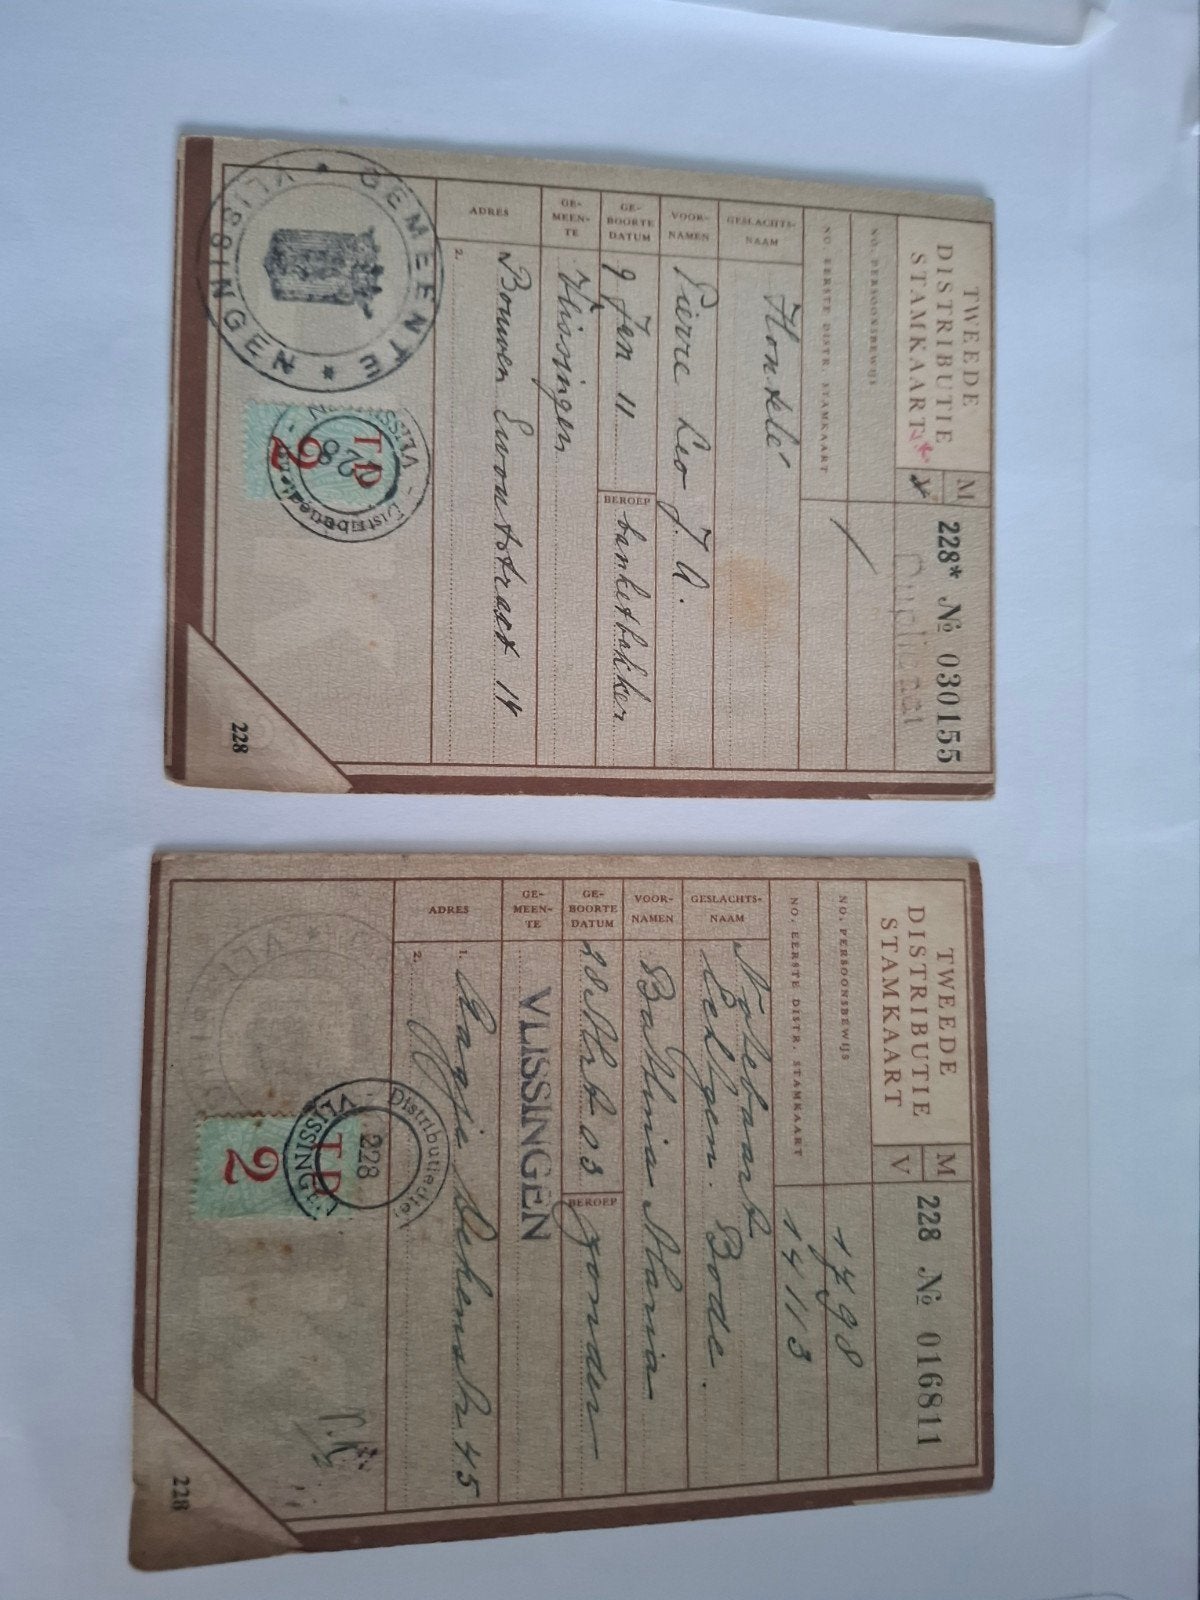 TWEEDE
DISTRIBUTIE
STAMKAART
M
V
228* № 030155
Duplicaat
NO. PERSOONSBEWIJS
NO. EERSTE DISTR. STAMKAART
GESLACHTS-
NAAM
VOOR-
NAMEN
Pierre Leo J.A.
GE-
BOORTE
DATUM
9 Jan 11
BEROEP
banketbakker
GE-
MEEN-
TE
Vlissingen
ADRES
Bouwen Ewoutstraat 14
2.
* GEMEENTE * VLISSINGEN
VLISSINGEN - Distributiedienst -
228
T.D.
2
228
TWEEDE
DISTRIBUTIE
STAMKAART
M
V
228 № 016811
NO. PERSOONSBEWIJS
NO. EERSTE DISTR. STAMKAART
14113
GESLACHTS-
NAAM
VOOR-
NAMEN
Bathina Maria
GE-
BOORTE
DATUM
28 Mrt 03
BEROEP
zonder
GE-
MEEN-
TE
VLISSINGEN
ADRES
1. Aagje Dekenstr. 45
2.
Distributiedienst
228
VLISSINGEN
T.D.
2
228